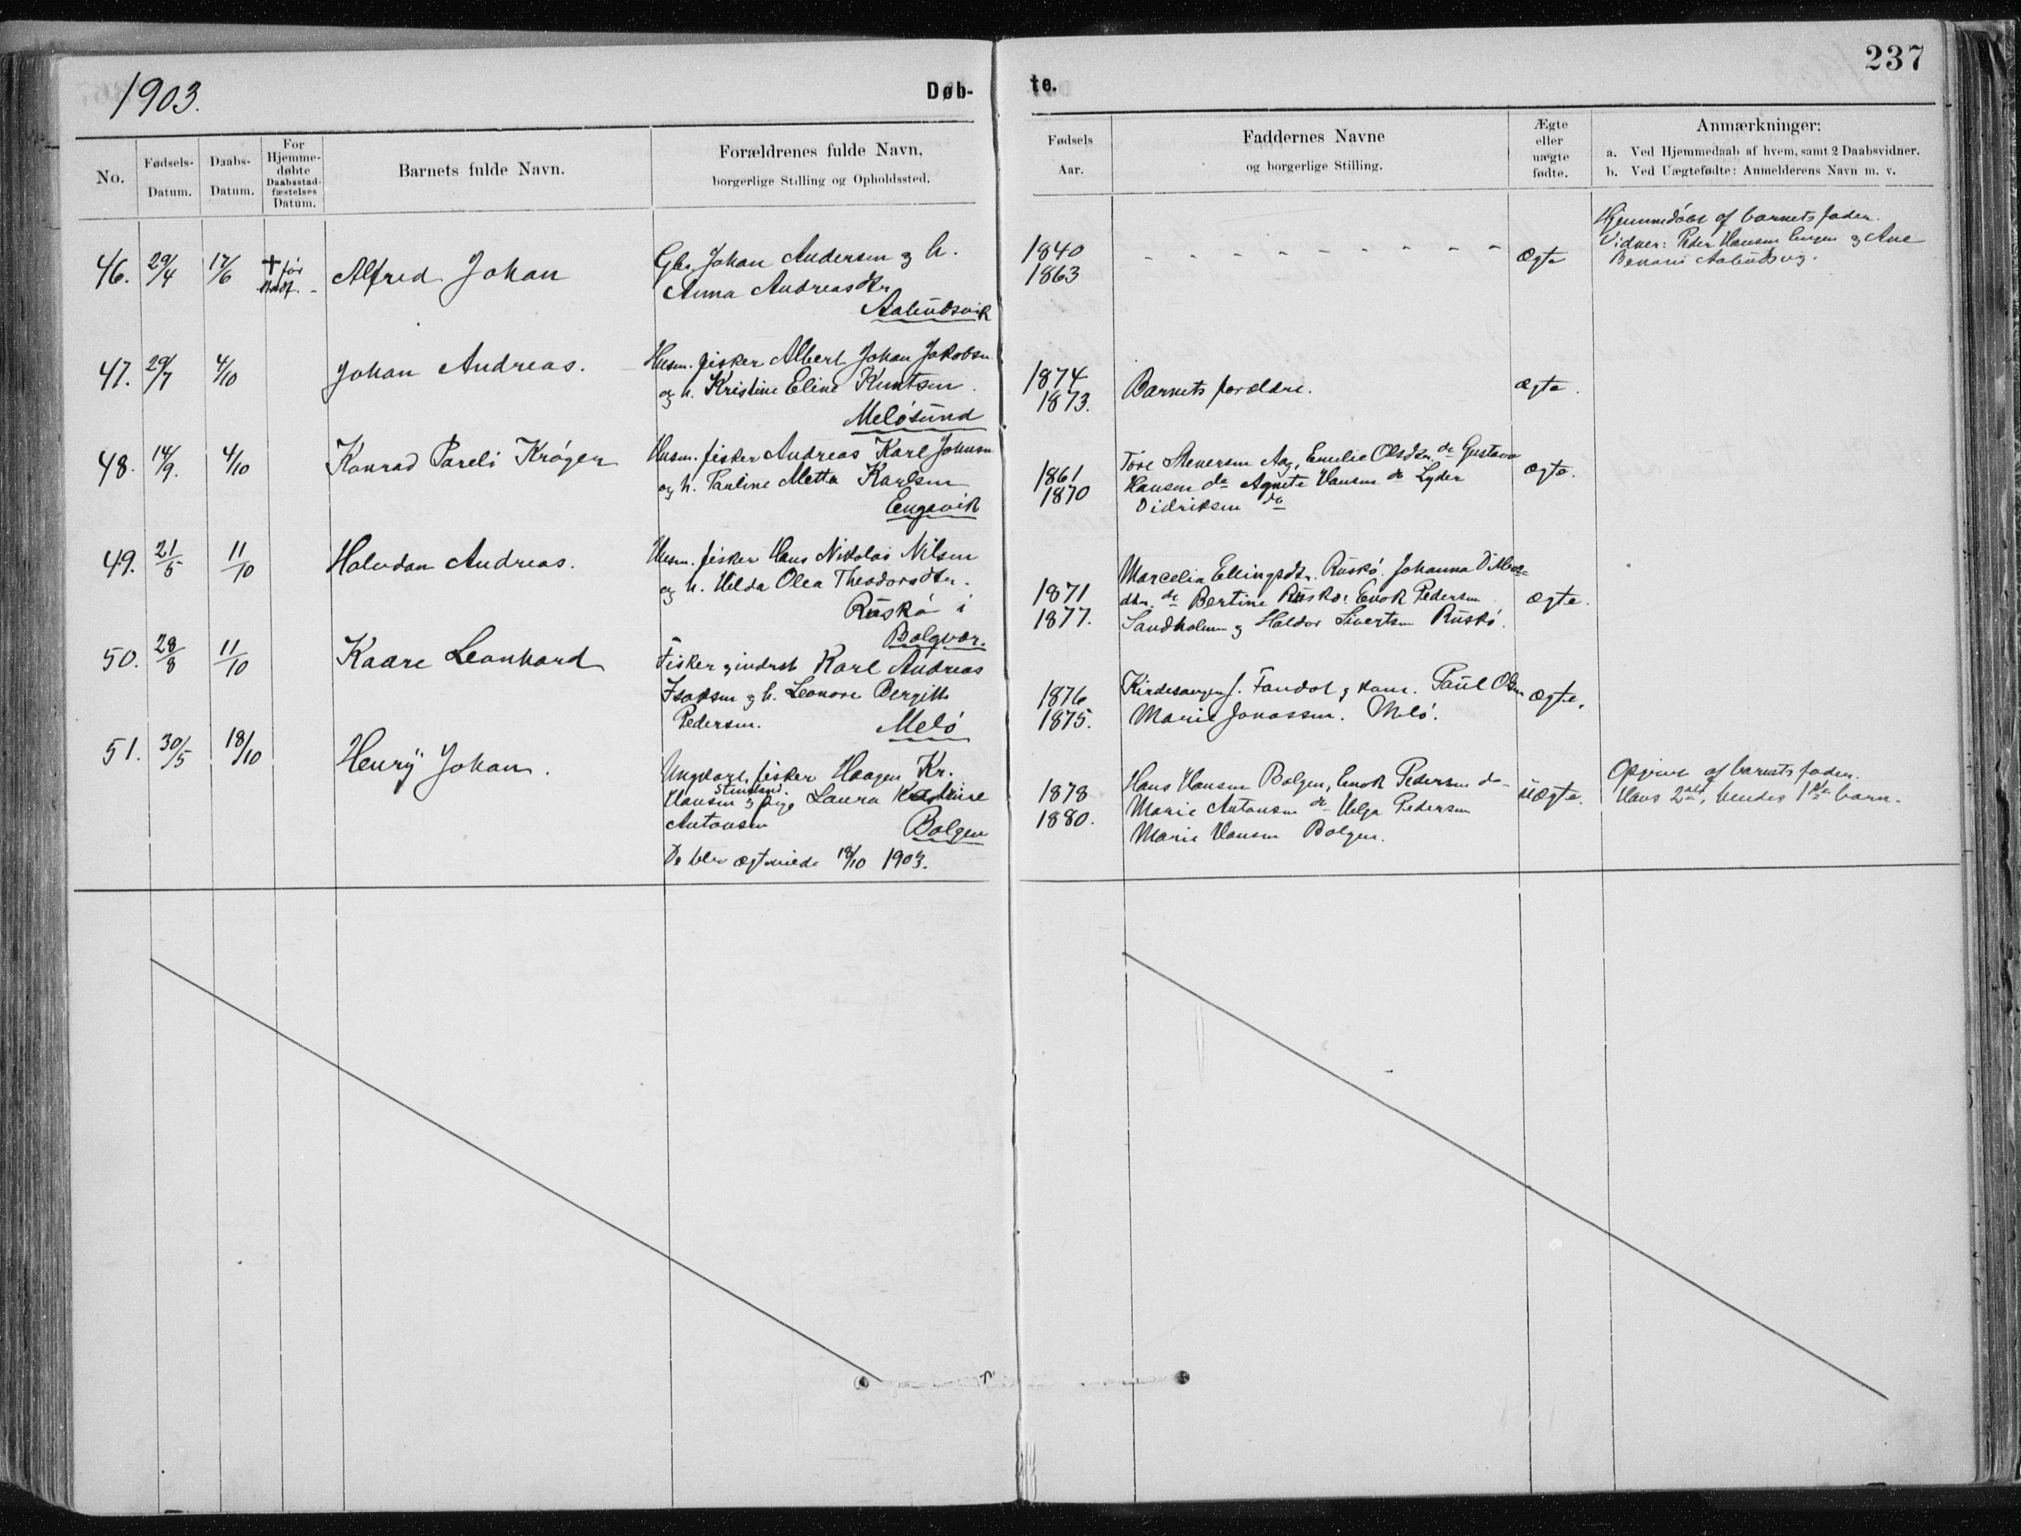 1903.
Døb-
te.
237
No.
Fødsels-
Datum.
Daabs-
Datum.
For
Hjemme-
døbte
Daabsstad-
fæstelses
Datum.
Barnets fulde Navn.
Forældrenes fulde Navn,
borgerlige Stilling og Opholdssted.
Fødsels
Aar.
Faddernes Navne
og borgerlige Stilling.
Ægte
eller
uægte
fødte.
Anmærkninger:
a. Ved Hjemmedaab af hvem, samt 2 Daabsvidner.
b. Ved Uægtefødte: Anmelderens Navn m. v.
46. 29/4 17/6 † før
stadf. -
Alfred Johan
Gbr. Johan Andersen og h.
Anna Andreasdtr.
1840
1863
- - - - - - - - -
ægte
Hjemmedøbt af barnets fader.
Vidner: Peder Hansen Engen og Ane
47. 29/7 4/10
Johan Andreas.
Husm. fisker Albert Johan Jakobsen
og h. Kristine Eline Knutsen.
Meløsund
1874
1873.
Barnets forældre.
ægte.
48. 14/9. 4/10
Konrad Pareli Krøger
Husm. fisker Andreas Karl Johnsen
og h. Pauline Metta Karlsen
Engavik
1861
1870
Tore Meversen Aag, Emilie Olsdtr. do Gustava
Hansen do Agnete Hansen do Lyder
Didriksen do
ægte.
49. 21/5 11/10
Halvdan Andreas.
Husm. fisker Hans Nikolai Nilsen
og h. Hilda Olea Theodorsdtr.
Ruskø i
Bolgvær.
1871
1877.
Marcelia Ellingsdtr. Ruskø. Johanna
dtr. do Bertine Ruskø: Enok Pedersen
Sandholmen og Haldor Sivertsen Ruskø.
ægte.
50. 28/8 11/10
Kaare Leonhard
Fisker og inderst Karl Andreas
Isaksen og h. Leonore Bergitte
Pedersen. Melø
1876
1875.
Kirkesanger J. Fandal og kone. Paul Olsen
Marie Jonassen. Melø.
ægte.
51. 30/5 18/10
Henry Johan.
Ungkarl, fisker Haagen Kr.
Hansen og pige Laura Katrine
Antonsen Bolgen
De blev ægteviede 18/10 1903.
1878
1880.
Hans Hansen Bolgen, Enok Pedersen do-
Marie Antonsen do Helga Pedersen
Marie Hansen Bolgen.
uægte.
Opgivet af barnets fader.
Hans 2det, hendes 1ste barn.